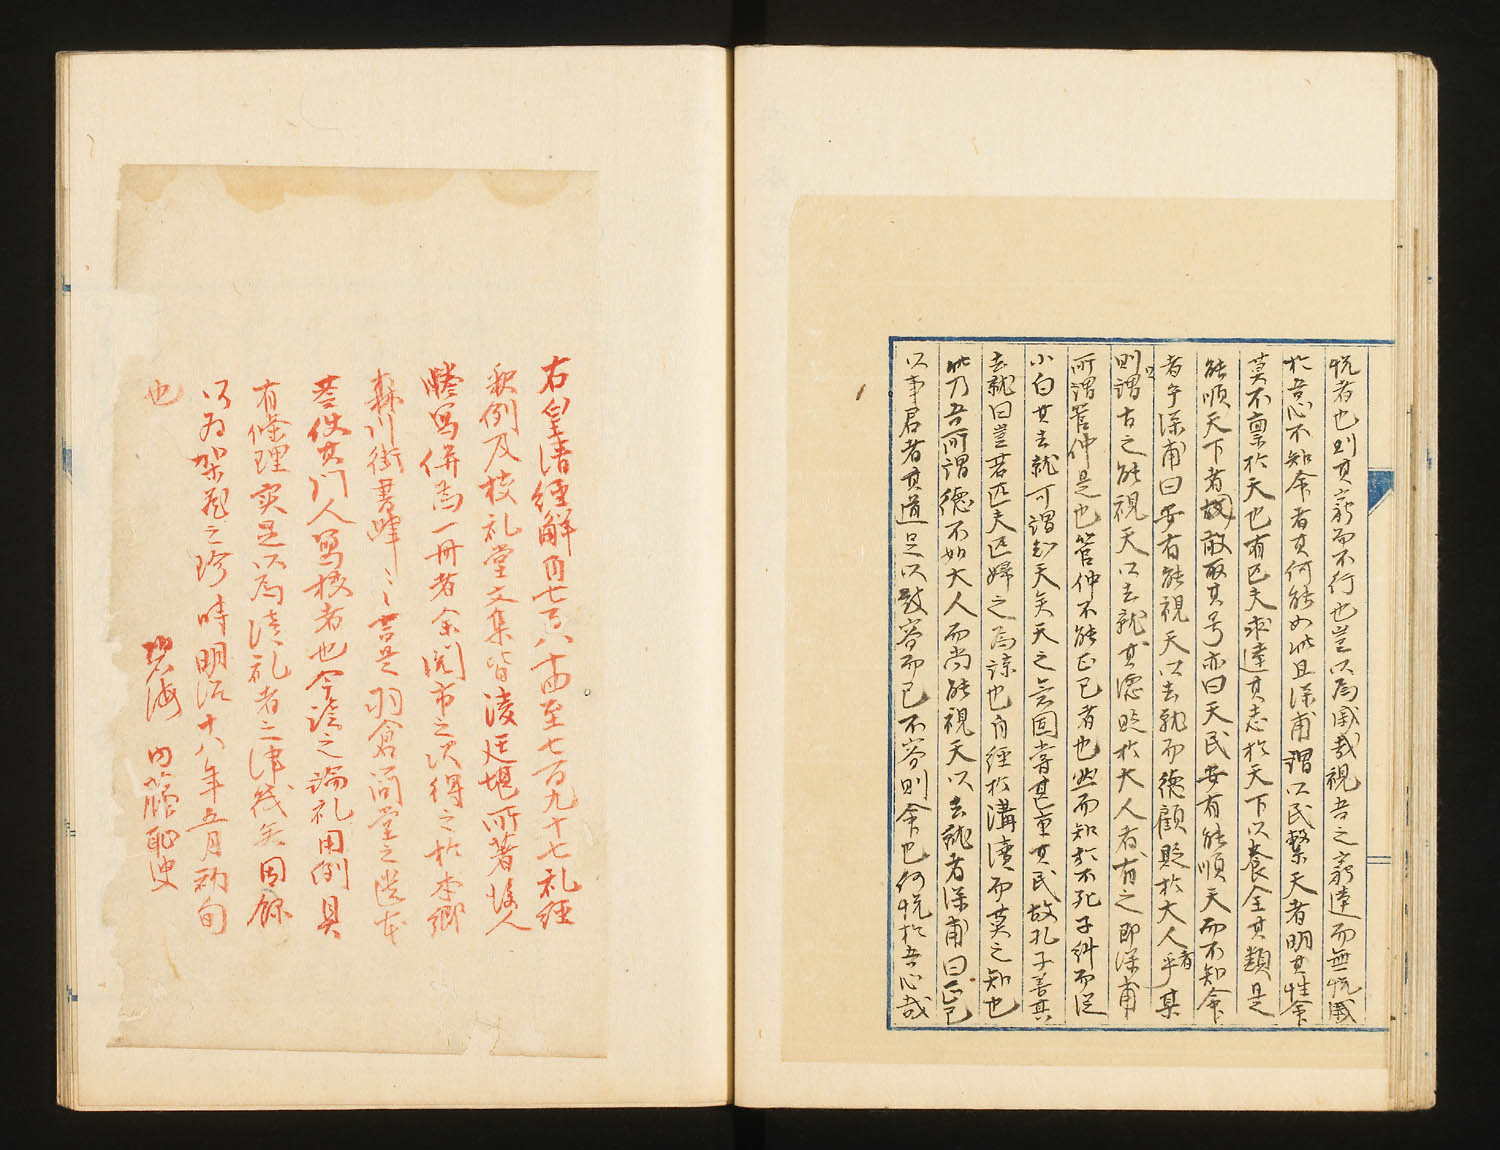 悦者也則其窮而不行也豈以爲慼哉視吾之窮達而無悦慼
於吾心不知命者其何能如此且深甫謂以民繫天者明其性命
莫不稟於天也有匹夫求達其志於天下以養全其類是
能順天下者故敢取其号亦曰天民安有能順天而不知命
者乎深甫曰安有能視天以去就而德顧貶於大人者乎某
則謂古之能視天以去就其德貶於大人者有之即深甫
所謂管仲是也管仲不能正己者也然而知於不死子糾而従
小白其去就可謂知天矣天之意固嘗甚重其民故孔子善其
去就曰豈若匹夫匹婦之爲諒也自経於溝瀆而莫之知也
此乃吾所謂德不如大人而尚能視天以去就者深甫曰正己
以事君者其道足以致容而已不容則命也何悦於吾心哉
右皇清經解自七百八十四至七百九十七礼經
釈例及校礼堂文集皆淩廷堪所著後人
謄写併為一冊者余閲市之次得之於本郷
森川街書肆〻〻言是羽倉簡堂之遺本
蓋使其門人写校者也今読之論礼用例具
有條理実是以為読礼者之津筏矣因録
以為架蔵之珍時明治十八年五月初旬
也
碧海 内藤耻叟